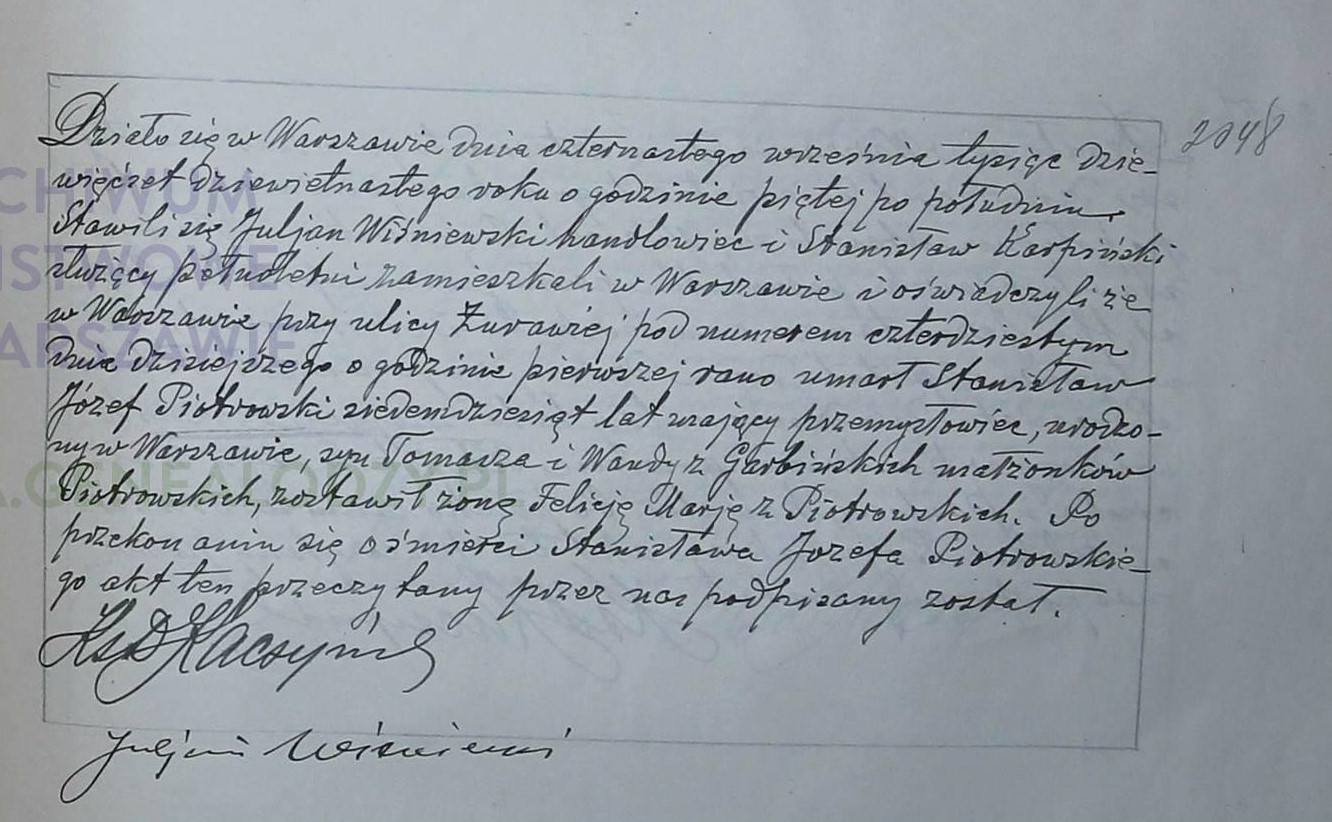 Działo się w Warszawie dnia czternastego września tysiąc dzie-
2048
więćset dziewiętnastego roku o godzinie piątej po południu.
Stawili się Juljan Wiśniewski handlowiec i Stanisław Karpiński
służący pełnoletni zamieszkali w Warszawie i oświadczyli że
w Warszawie przy ulicy Żurawiej pod numerem czterdziestym
dnia dzisiejszego o godzinie pierwszej rano umarł Stanisław
Józef Piotrowski siedemdziesiąt lat mający przemysłowiec, urodzo-
ny w Warszawie, syn Tomasza i Wandy z Garbińskich małżonków
Piotrowskich, zostawił żonę Felicję Marję z Piotrowskich. Po
przekonaniu się o śmierci Stanisława Józefa Piotrowskie-
go akt ten przeczytany przez nas podpisany został.
Ks D
Juljan Wiśniewski
CHIWUM
ŃSTWOWE
ARSZAWIE
A.GENEALODZY.PL